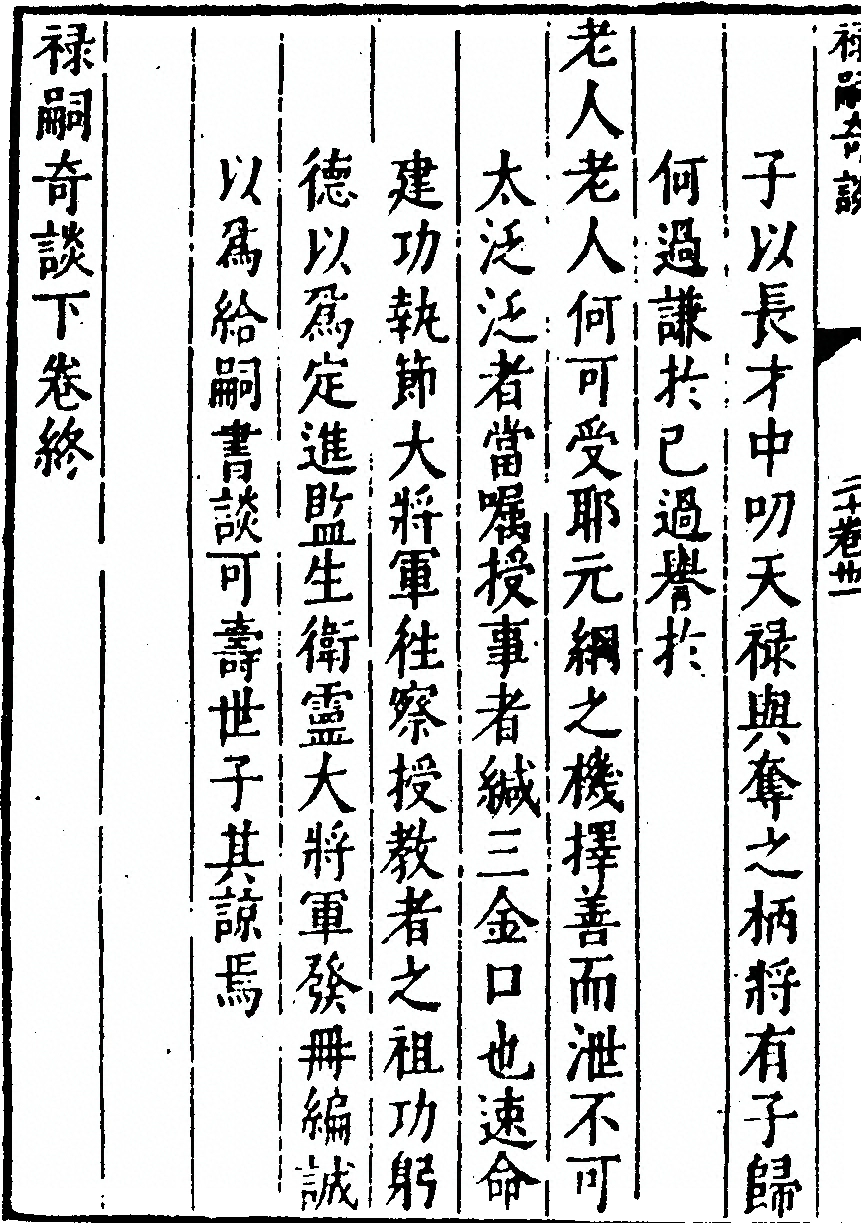 祿嗣奇談
二十卷
子以長才中叨天祿與奪之柄將有子歸
何過謙於已過譽於
老人老人何可受耶元綱之機擇善而泄不可
太泛泛者當嘱授事者緘三金口也速命
建功執節大將軍徃察授教者之祖功躬
德以爲定進監生衛靈大將軍發冊編誠
以爲給嗣書談可壽世子其諒焉
祿嗣奇談下卷終